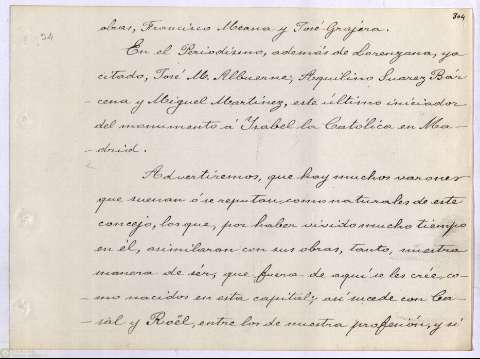 304
34
obras, Francisco Meana y José Grajera.
En el Periodismo, además de Lorenzana, ya
citado, José M. Albuerne, Aquilino Suarez Bár-
-cena y Miguel Martínez, este último iniciador
del monumento á Isabel la Católica en Ma-
-drid.
Advertiremos, que hay muchos varones
que suenan ó se reputan como naturales de este
concejo, los que, por haber vivido mucho tiempo
en él, asimilaron con sus obras, tanto, nuestra
manera de sér, que fuera de aquí se les crée, co-
mo nacidos en esta capital; así sucede con Ca-
sal y Roël, entre los de nuestra profesión, y si